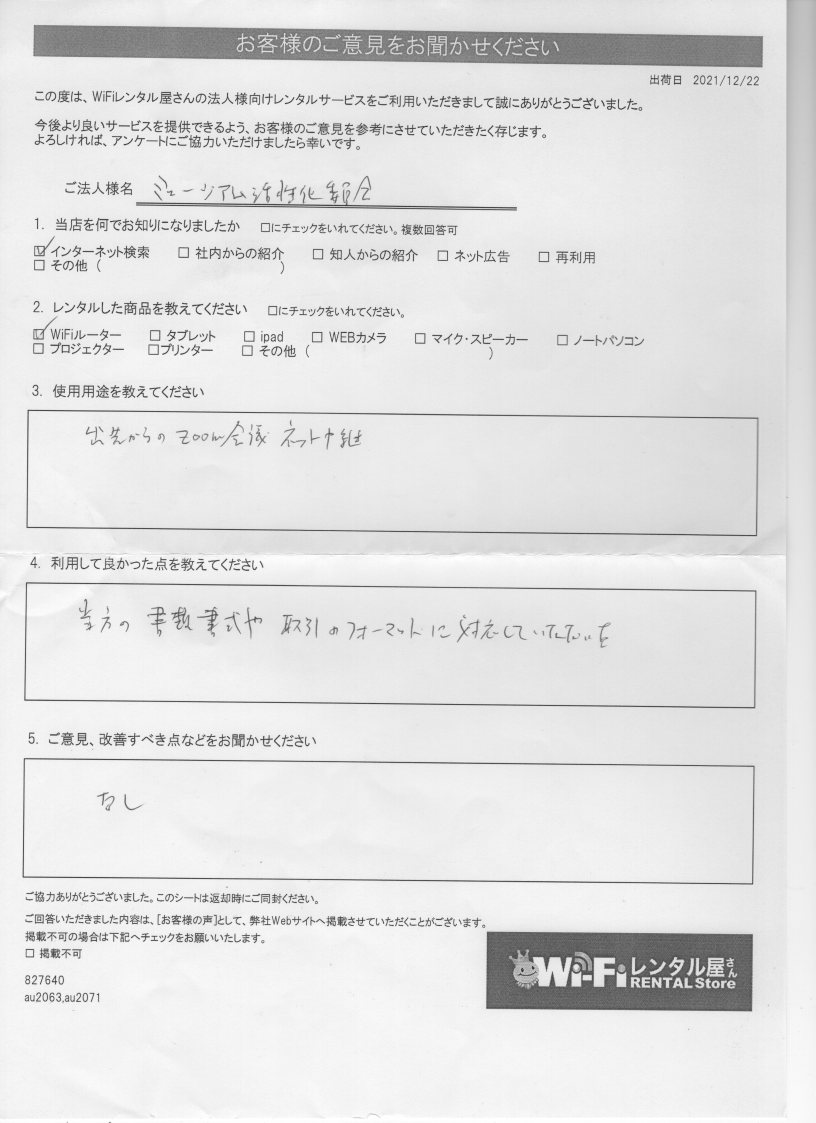 お客様のご意見をお聞かせください
出荷日 2021/12/22
この度は、WiFiレンタル屋さんの法人様向けレンタルサービスをご利用いただきまして誠にありがとうございました。
今後より良いサービスを提供できるよう、お客様のご意見を参考にさせていただきたく存じます。
よろしければ、アンケートにご協力いただけましたら幸いです。
ご法人様名 ミュージアム活性化委員会
1. 当店を何でお知りになりましたか □にチェックをいれてください。複数回答可
☑ インターネット検索 □ 社内からの紹介 □ 知人からの紹介 □ ネット広告 □ 再利用
□ その他 ( )
2. レンタルした商品を教えてください □にチェックをいれてください。
☑ WiFiルーター □ タブレット □ ipad □ WEBカメラ □ マイク・スピーカー □ ノートパソコン
□ プロジェクター □プリンター □ その他 ( )
3. 使用用途を教えてください
出先からの Zoom会議 ネット中継
4. 利用して良かった点を教えてください
当方の 書類書式や 取引のフォーマットに対応していただいた
5. ご意見、改善すべき点などをお聞かせください
なし
ご協力ありがとうございました。このシートは返却時にご同封ください。
ご回答いただきました内容は、[お客様の声]として、弊社Webサイトへ掲載させていただくことがございます。
掲載不可の場合は下記へチェックをお願いいたします。
□ 掲載不可
827640
au2063,au2071
Wi-Fi レンタル屋さん
RENTAL Store